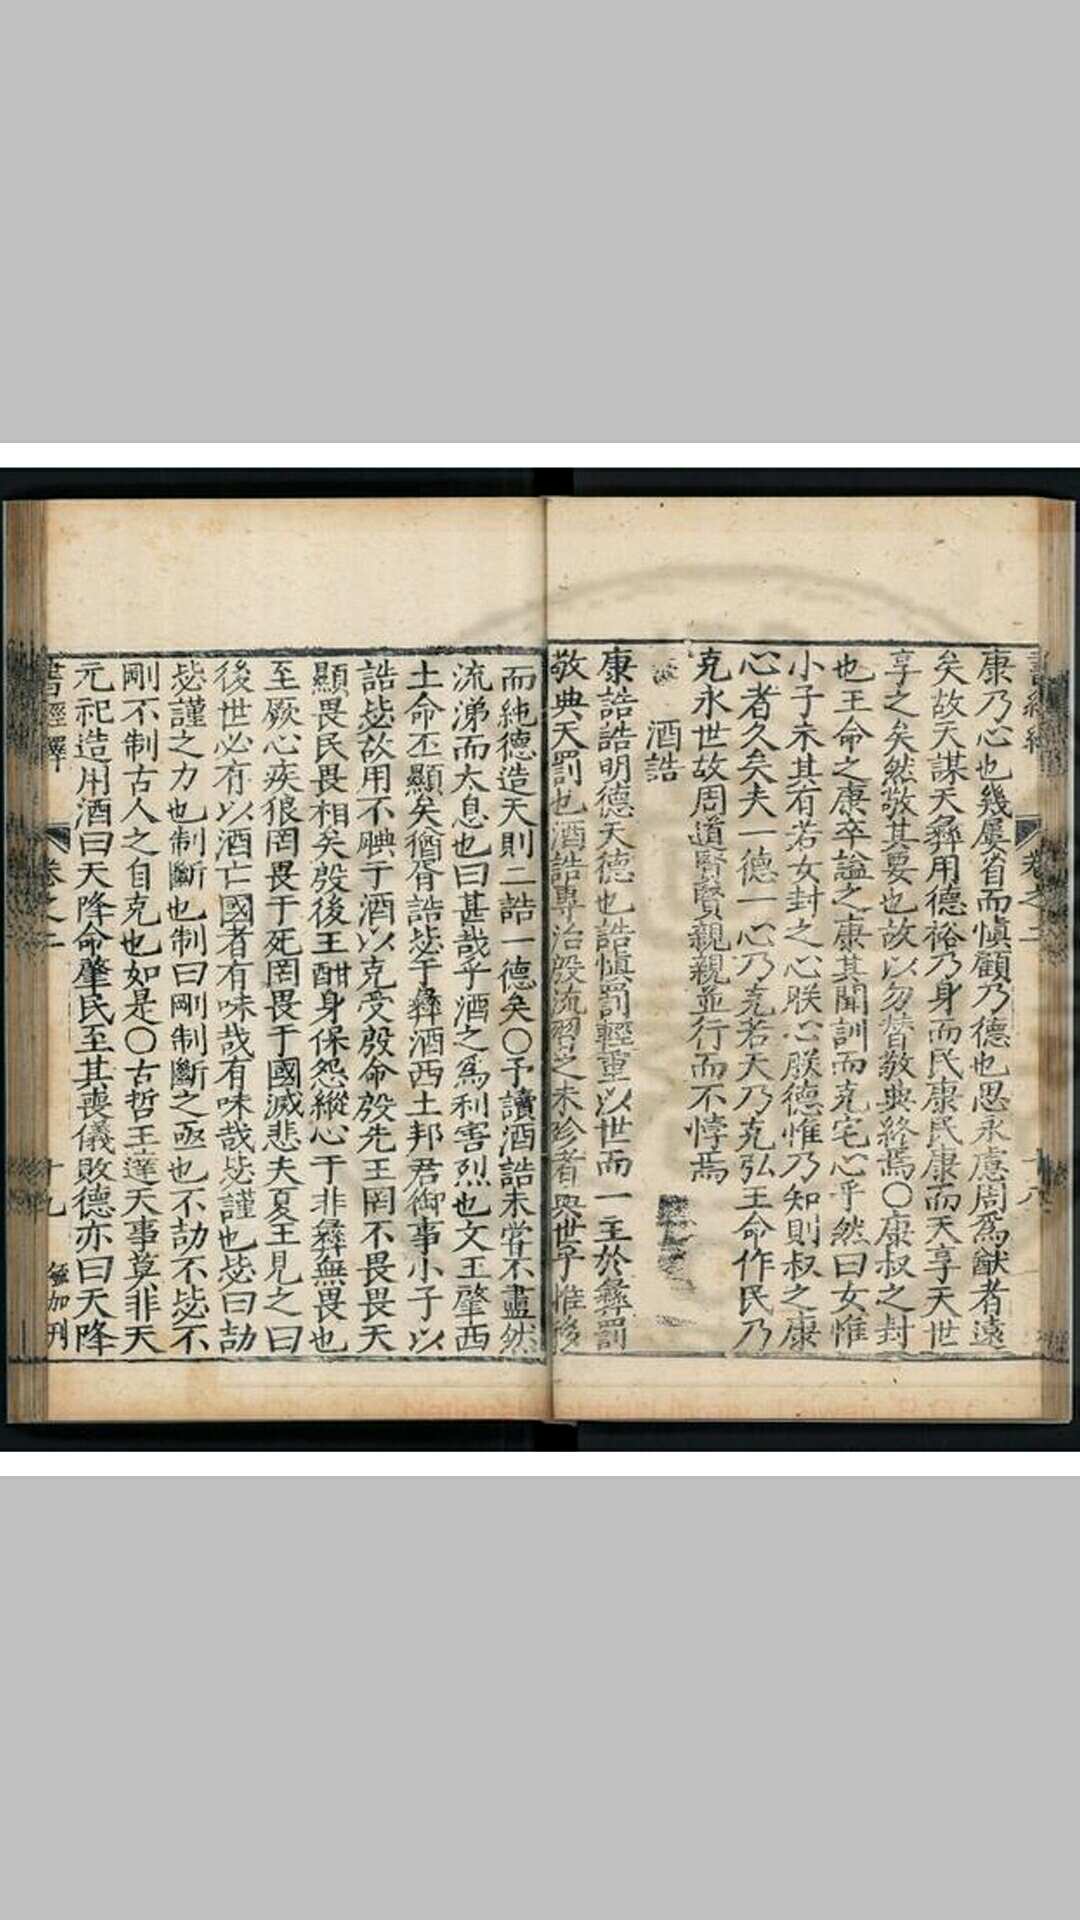 康乃心也幾屢省而愼顧乃德也思永慮周爲猷者遠
矣故天謀天彝用德裕乃身而民康民康而天享天世
享之矣然敬其要也故以勿替敬典終焉〇康叔之封
也王命之康卒謚之康其聞訓而克宅心乎然曰女惟
小子未其有若女封之心朕心朕德惟乃知則叔之康
心者久矣夫一德一心乃克若天乃克弘王命作民乃
克永世故周道賢賢親親並行而不悖焉
酒誥
康誥誥明德天德也誥愼罰輕重以世而一主於彝罰
敬典天罰也酒誥專治殷流習之未殄者與世乎惟移
而純德造天則二誥一德矣〇予讀酒誥未嘗不盡然
流涕而太息也曰甚哉乎酒之爲利害烈也文王肇西
土命丕顯矣猶胥誥毖于彝酒西土邦君御事小子以
誥毖故用不腆于酒以克受殷命殷先王罔不畏畏天
顯畏民畏相矣殷後王酣身保怨縱心于非彝無畏也
至厥心疾狠罔畏于死罔畏于國滅悲夫夏王見之曰
後世必有以酒亡國者有味哉有味哉毖謹也毖曰劼
毖謹之力也制斷也制曰剛制斷之亟也不劼不毖不
剛不制古人之自克也如是〇古哲王達天事莫非天
元祀造用酒曰天降命肇民至其喪儀敗德亦曰天降
書經繹 卷之二 十九